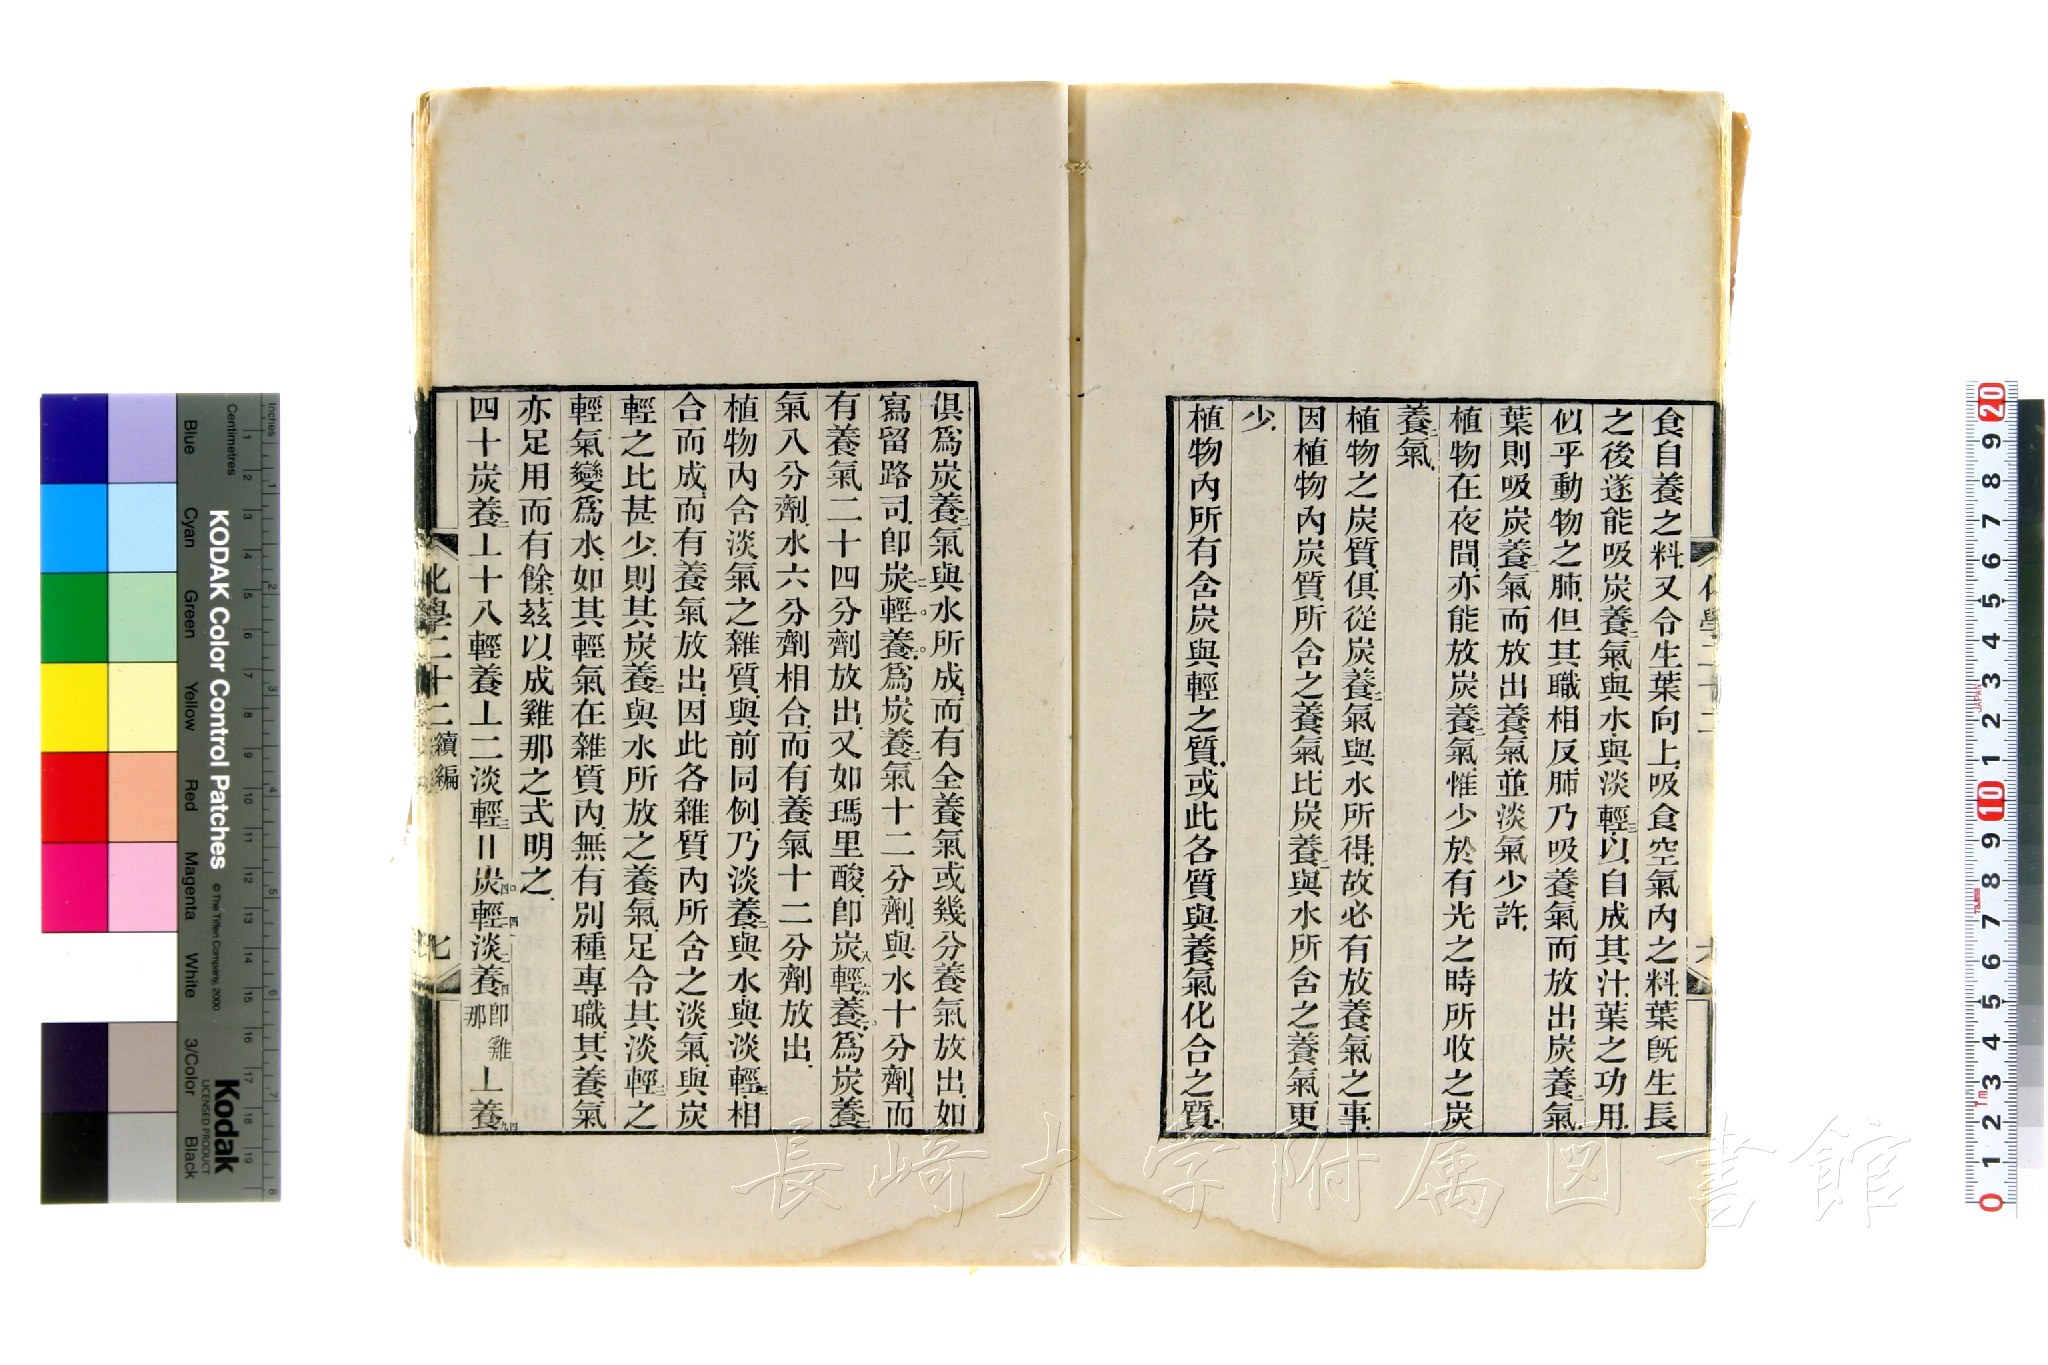 食自養之料又令生葉向上吸食空氣內之料葉旣生長
之後遂能吸炭養二氣與水與淡輕三以自成其汁葉之功用
似乎動物之肺但其職相反肺乃吸養氣而放出炭養二氣
葉則吸炭養二氣而放出養氣並淡氣少許
植物在夜間亦能放炭養二氣惟少於有光之時所收之炭
養二氣
植物之炭質俱從炭養二氣與水所得故必有放養氣之事
因植物內炭質所含之養氣比炭養二與水所含之養氣更
少
植物內所有含炭與輕之質或此各質與養氣化合之質
俱爲炭養二氣與水所成而有全養氣或幾分養氣放出如
寫留路司卽炭十二輕十養十爲炭養二氣十二分劑與水十分劑而
有養氣二十四分劑放出又如瑪里酸卽炭八輕六養十爲炭養二
氣八分劑水六分劑相合而有養氣十二分劑放出
植物內含淡氣之雜質與前同例乃淡養五與水與淡輕三相
合而成而有養氣放出因此各雜質內所含之淡氣與炭
輕之比甚少則其炭養二與水所放之養氣足令其淡輕三之
輕氣變爲水如其輕氣在雜質內無有別種專職其養氣
亦足用而有餘茲以成雞那之式明之
四十炭養二⊥十八輕養⊥二淡輕三〢炭四〇輕二四淡二養四卽雞那⊥養九四
化學二十二續編
七
KODAK Color Control Patches
© The Tiffen Company, 2000
Kodak
LICENSED PRODUCT
Inches
Centimetres
Blue
Cyan
Green
Yellow
Red
Magenta
White
3/Color
Black
長崎大学附属図書館